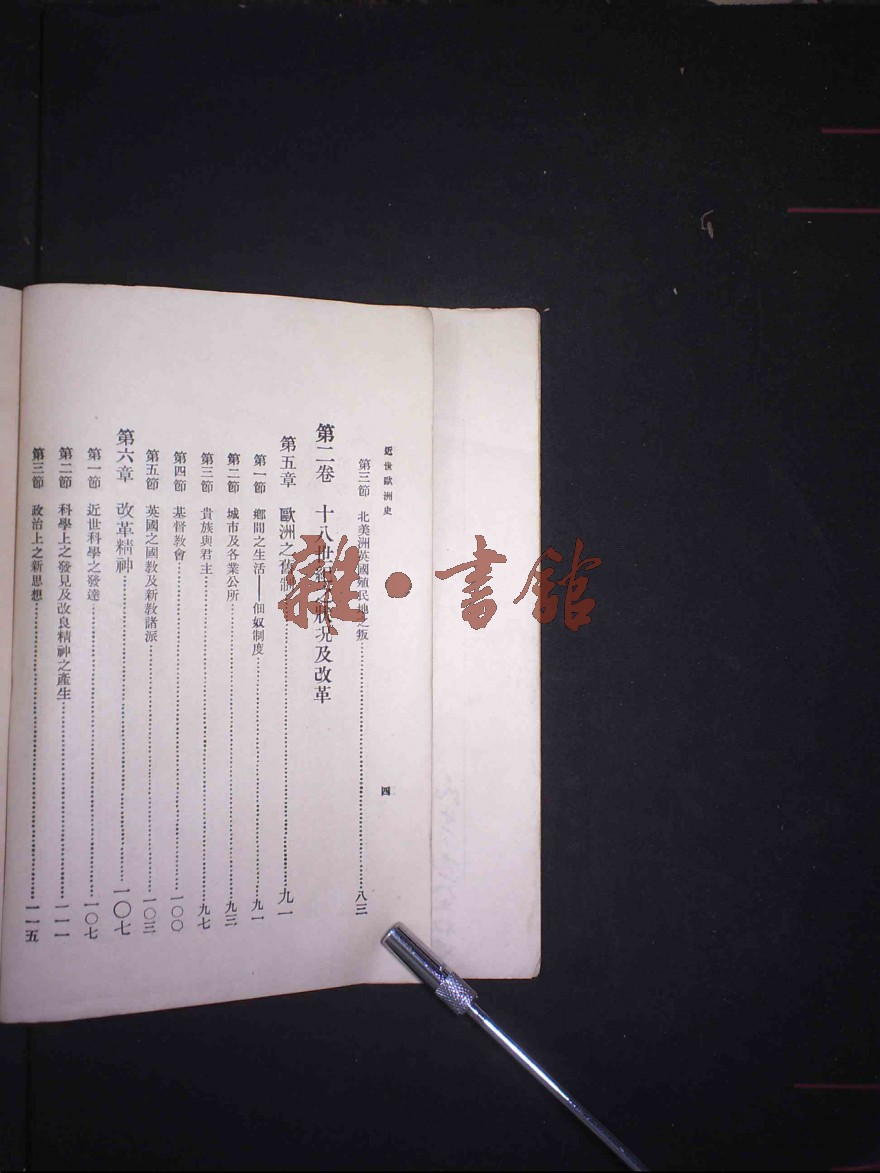 近世歐洲史
四
第三節 北美洲英國殖民地之叛……八三
第二卷 十八世紀之狀况及改革
第五章 歐洲之舊制……九一
第一節 鄉間之生活——佃奴制度……九一
第二節 城市及各業公所……九三
第三節 貴族與君主……九七
第四節 基督教會……一〇〇
第五節 英國之國教及新教諸派……一〇三
第六章 改革精神……一〇七
第一節 近世科學之發達……一〇七
第二節 科學上之發見及改良精神之產生……一一一
第三節 政治上之新思想……一一五
雜·書館